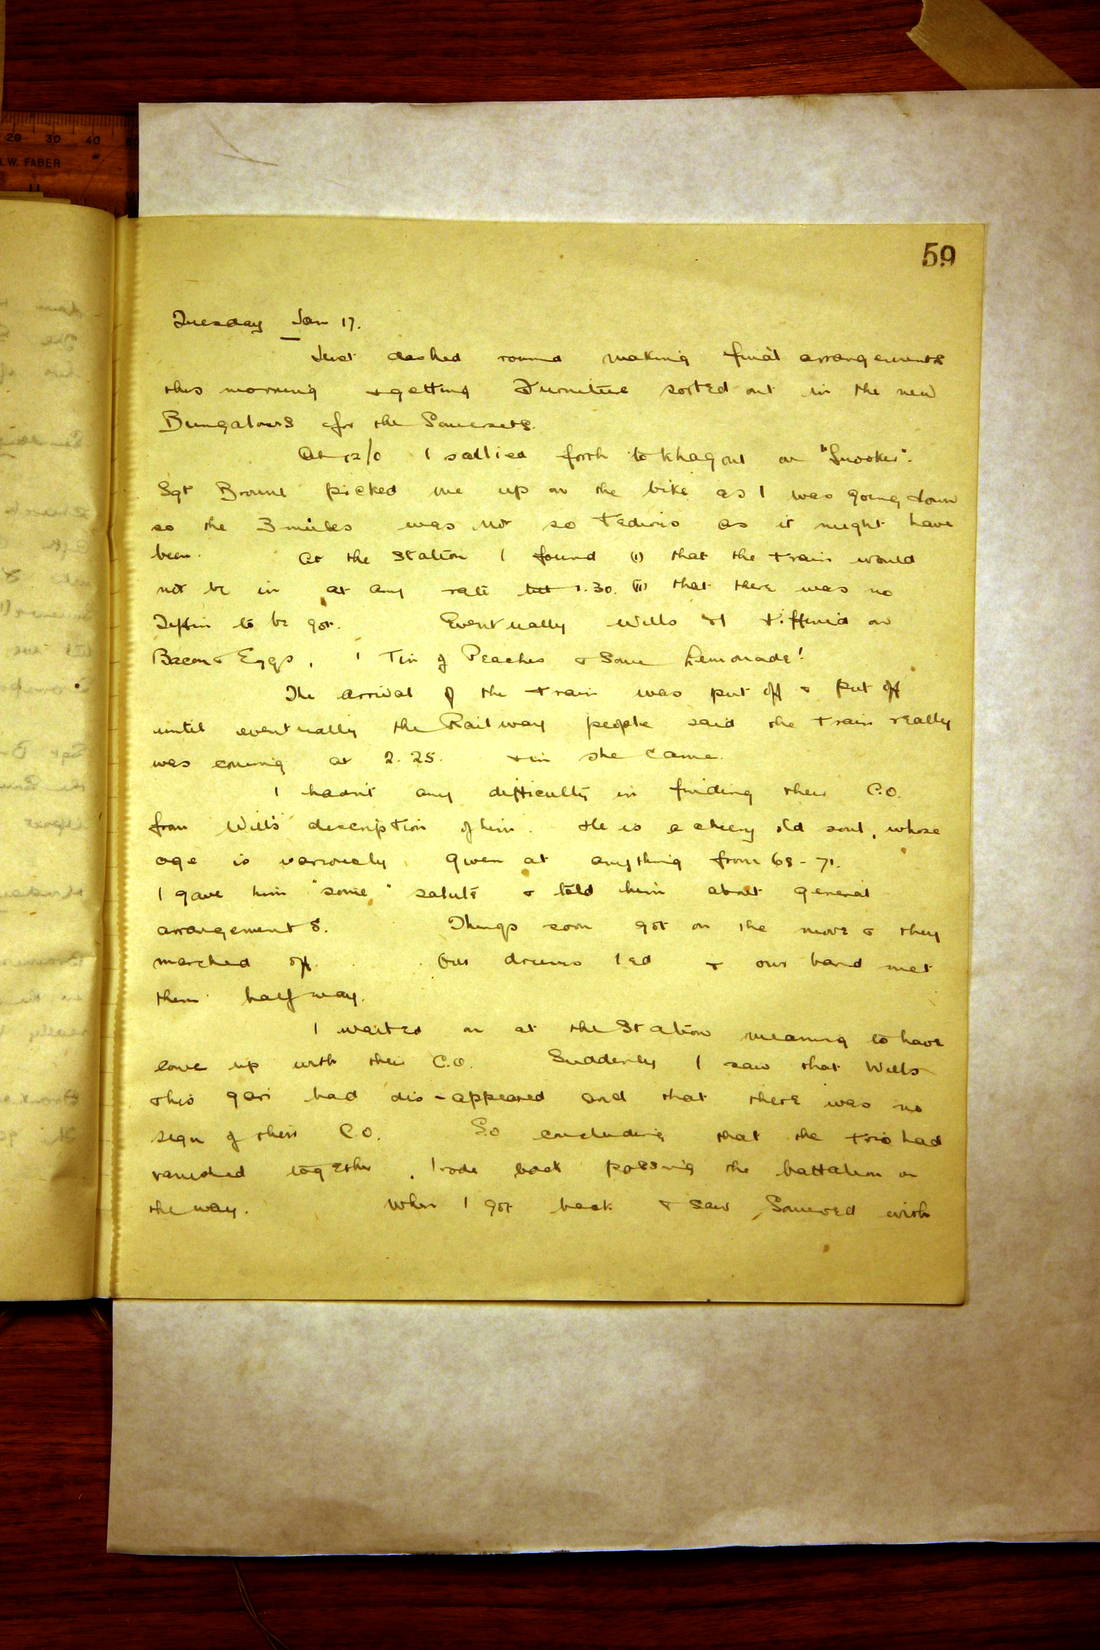 20 30 40
W. FABER
59
Tuesday Jan 17.
Just dashed round making final arrangements
this morning & getting Furniture sorted out in the new
Bungalows for the Somersets.
At 12/0 I sallied forth to Khagoul on "Snooker".
Sgt Browne picked me up on the bike as I was going down
so the 3 miles was not so tedious as it might have
been. At the Station I found (i) that the train would
not be in at any rate till 1.30. (ii) that there was no
Tiffin to be got. Eventually Wills & I tiffined on
Bacon & Eggs, 1 Tin of Peaches & some Lemonade!
The arrival of the train was put off & put off
until eventually the Railway people said the train really
was coming at 2.25. & in she came.
I hadn't any difficulty in finding their C.O.
from Wills' description of him. He is a cheery old soul, whose
age is variously given at anything from 68-71.
I gave him "some" salute & told him about general
arrangements. Things soon got on the move & they
marched off. Our drums led & our band met
them half way.
I waited on at the Station meaning to have
come up with their C.O. Suddenly I saw that Wills
& his gari had dis-appeared and that there was no
sign of their C.O. So concluding that the trio had
vanished together, I rode back passing the battalion on
the way. When I got back & saw with